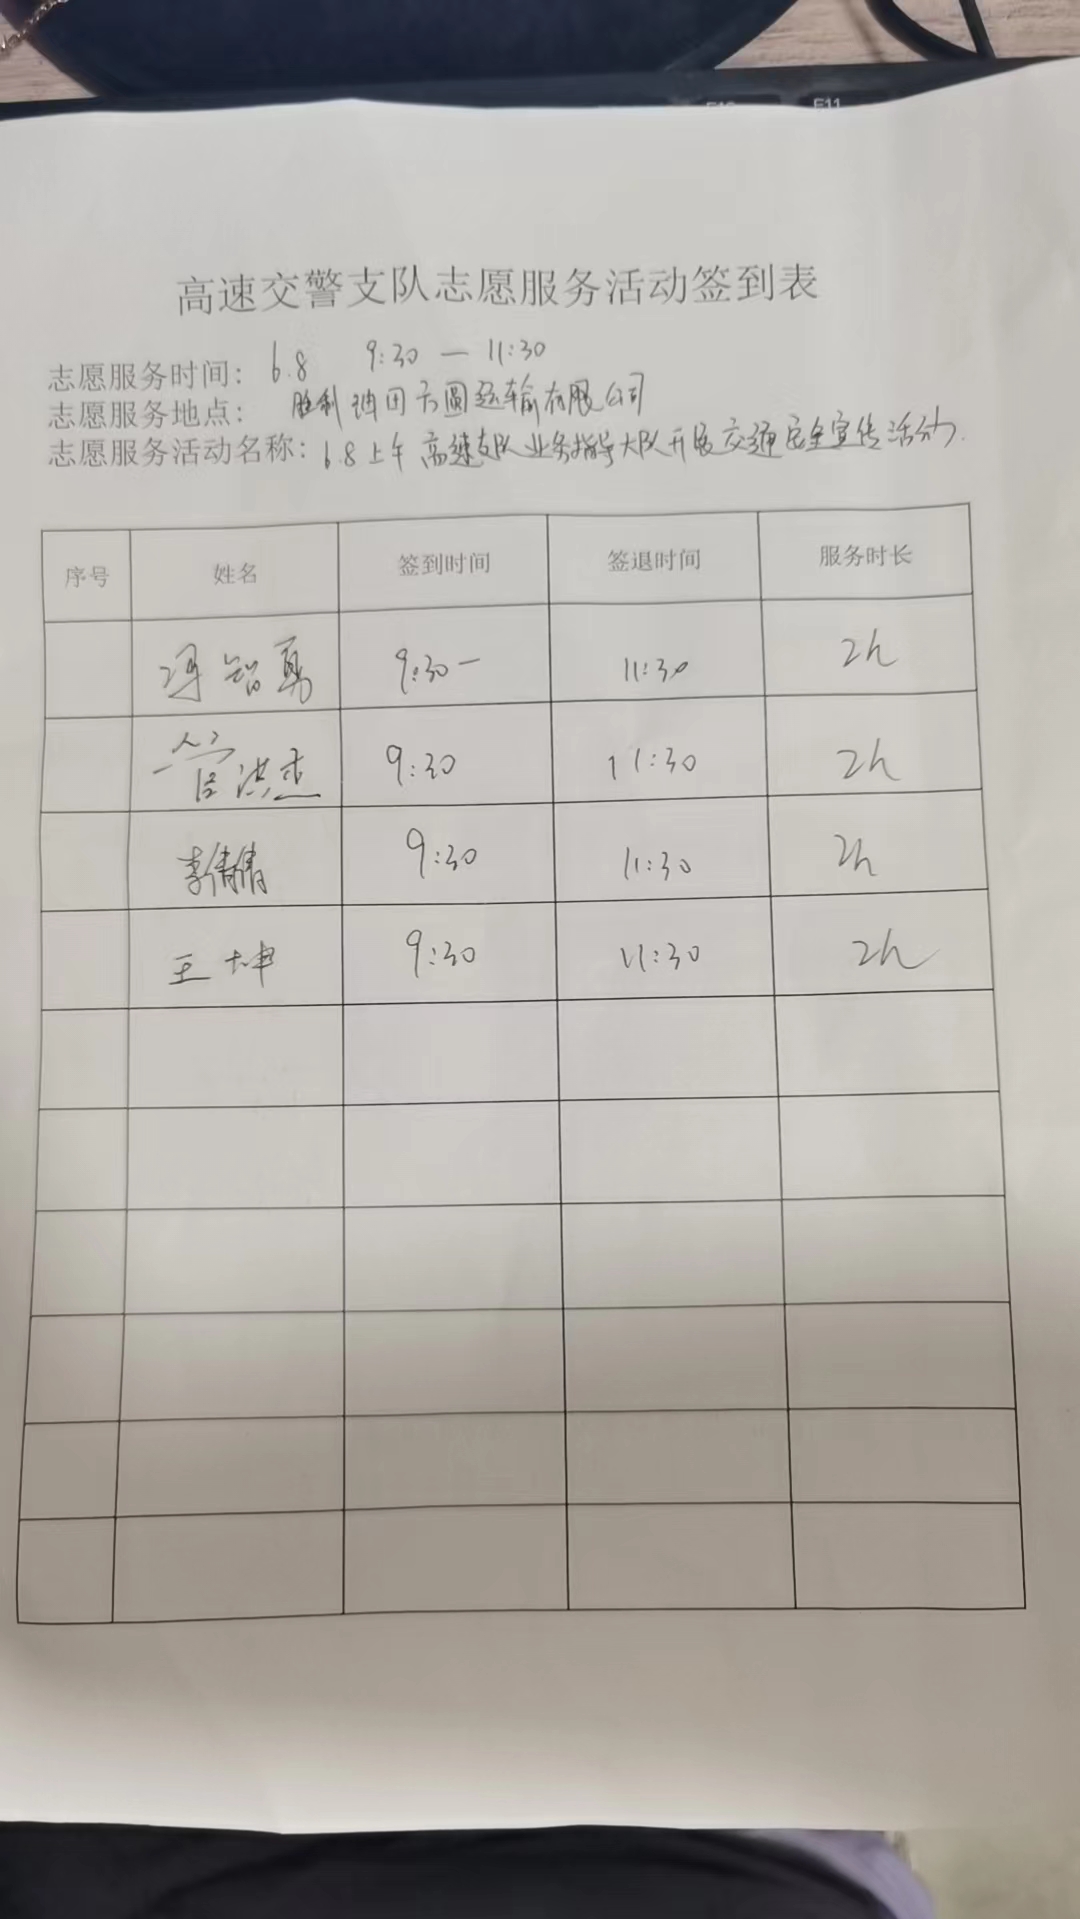 F10 F11
高速交警支队志愿服务活动签到表
志愿服务时间： 6.8 9:30 — 11:30
志愿服务地点： 胜利油田方圆运输有限公司
志愿服务活动名称：6.8上午高速支队业务指导大队开展交通安全宣传活动.
序号 姓名 签到时间 签退时间 服务时长
冯智勇 9:30一 11:30 2h
管洪杰 9:30 11:30 2h
李倩倩 9:30 11:30 2h
王坤 9:30 11:30 2h